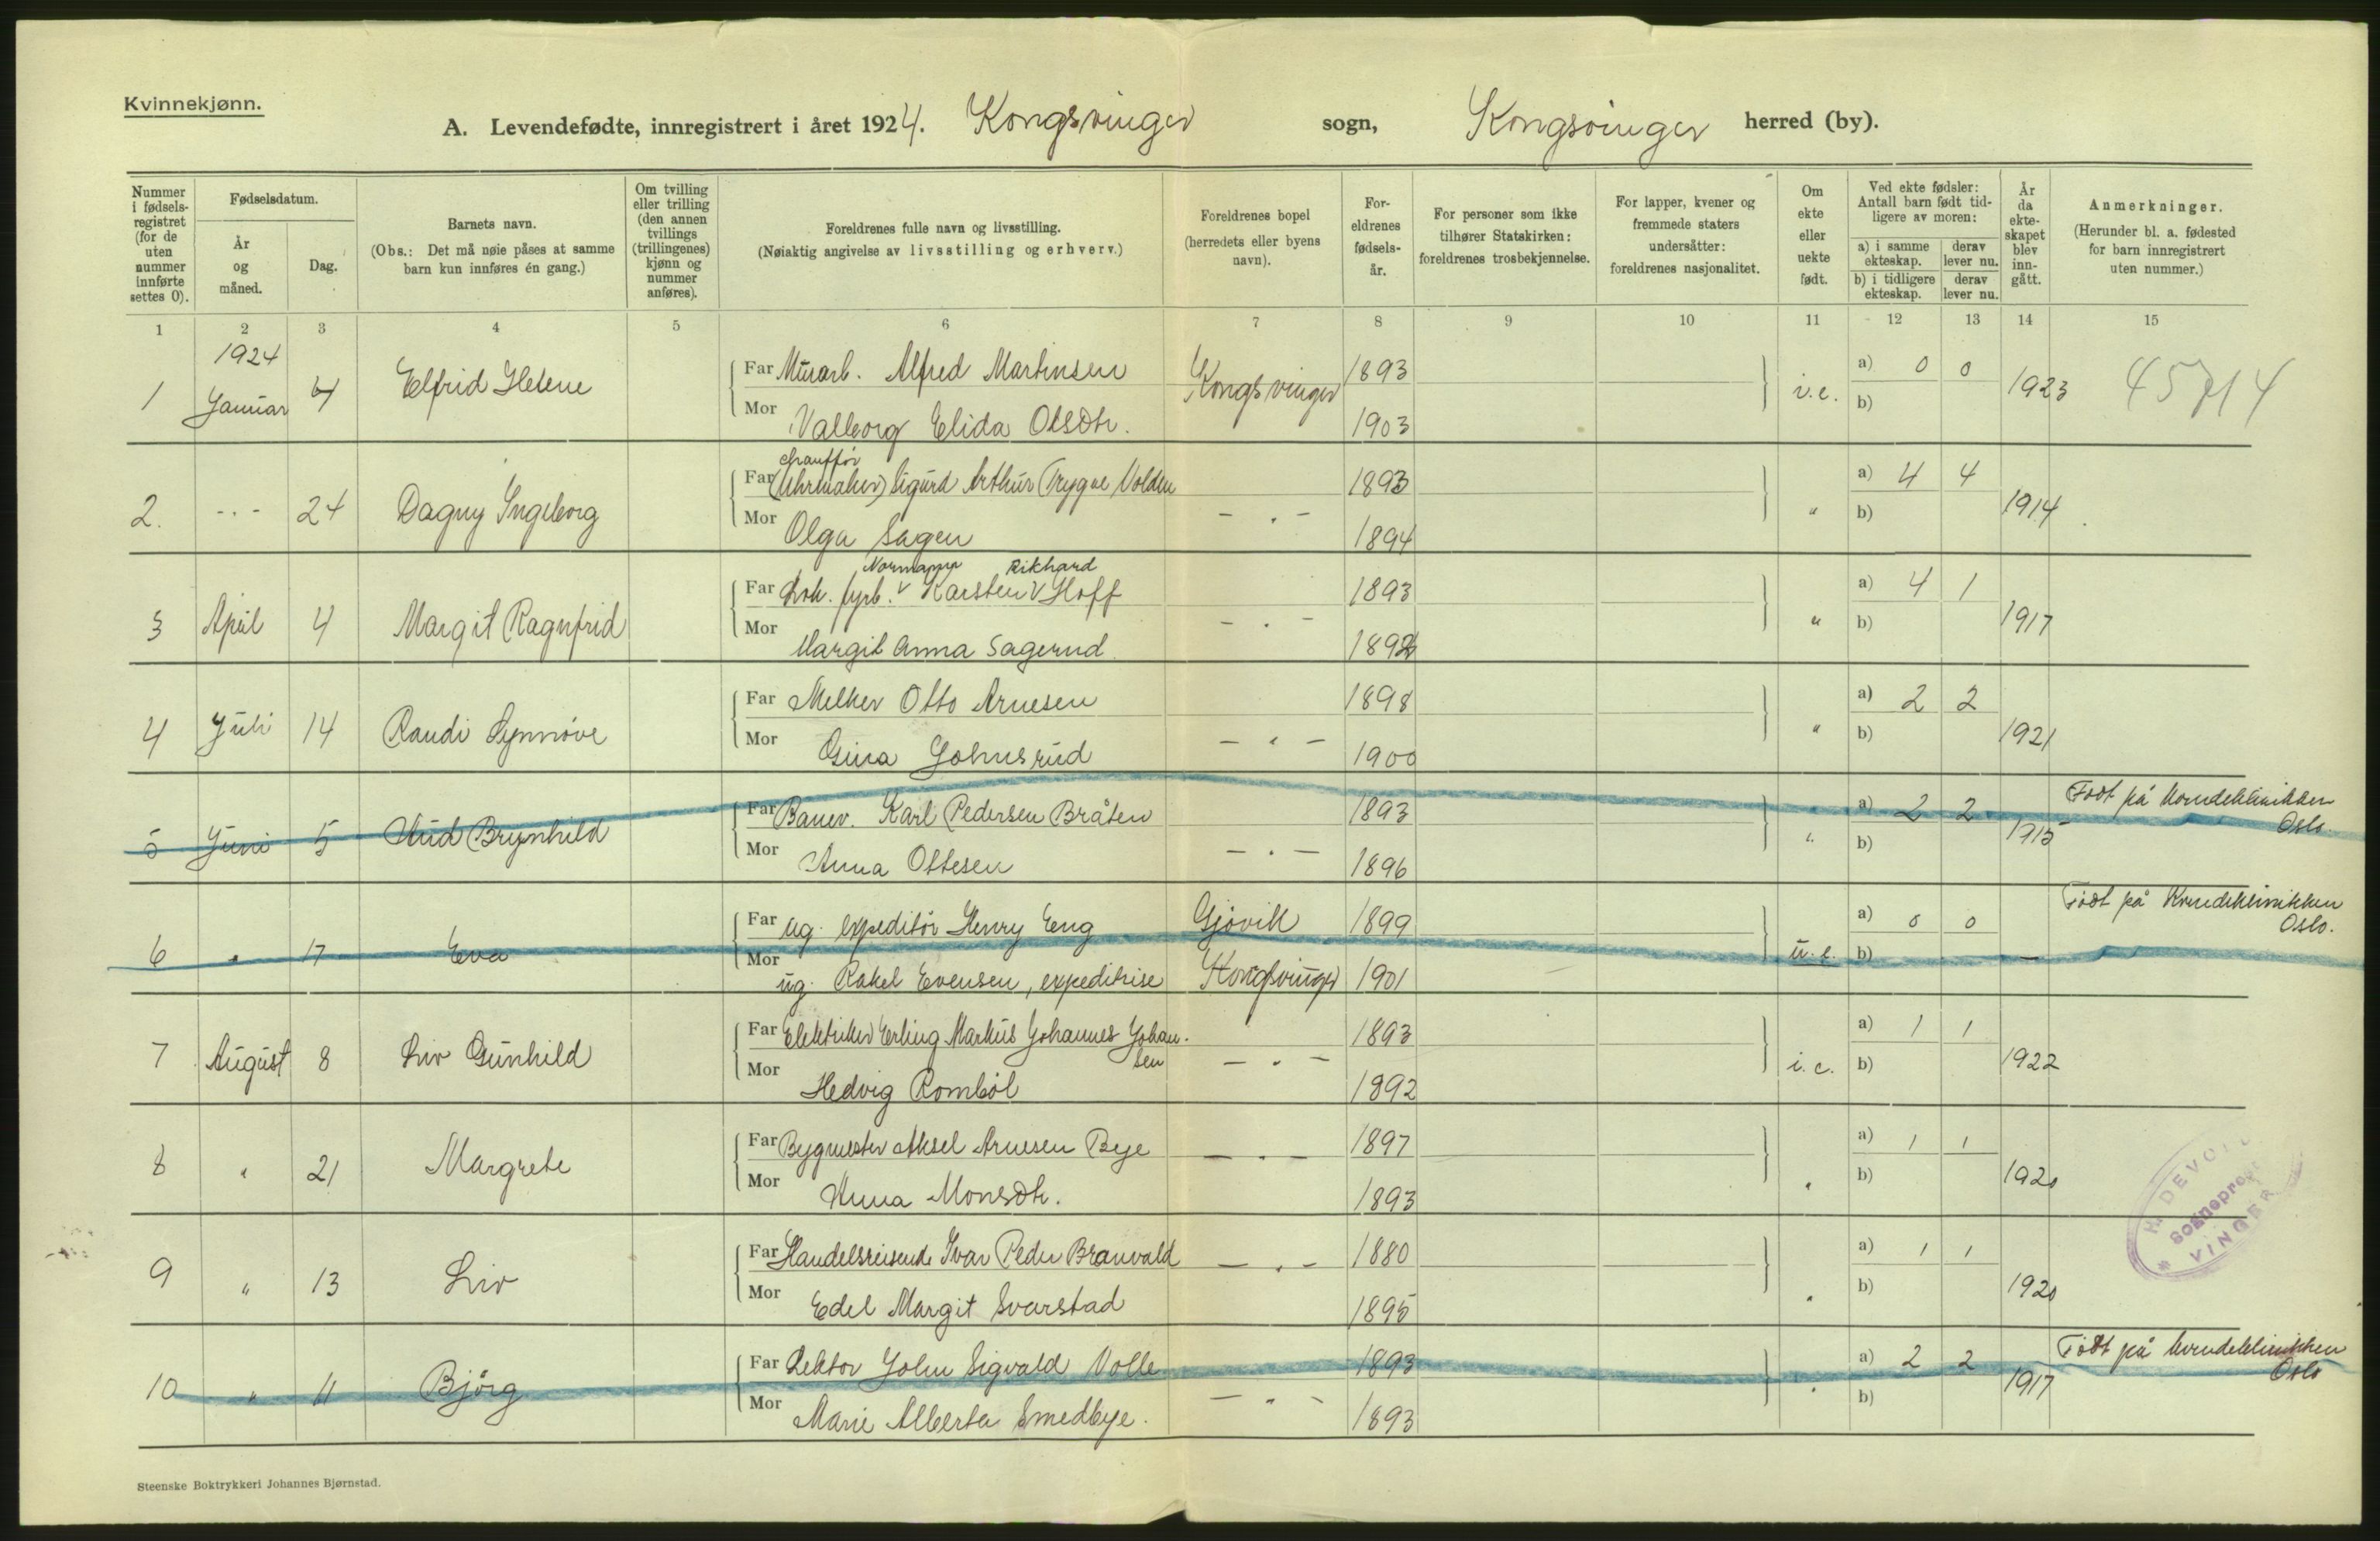 Kvinnekjønn.
A. Levendefødte, innregistrert i året 1924. Kongsvinger sogn, Kongsvinger herred (by).
Nummer i fødsels-registret (for de uten nummer innførte settes 0).
Fødselsdatum.
År og måned.
Dag.
Barnets navn.
(Obs.: Det må nøie påses at samme barn kun innføres én gang.)
Om tvilling eller trilling (den annen tvillings (trillingenes) kjønn og nummer anføres).
Foreldrenes fulle navn og livsstilling.
(Nøiaktig angivelse av livsstilling og erhverv.)
Foreldrenes bopel (herredets eller byens navn).
For-eldrenes fødsels-år.
For personer som ikke tilhører Statskirken: foreldrenes trosbekjennelse.
For lapper, kvener og fremmede staters undersåtter: foreldrenes nasjonalitet.
Om ekte eller uekte født.
Ved ekte fødsler: Antall barn født tid-ligere av moren:
a) i samme ekteskap. derav lever nu.
b) i tidligere ekteskap. derav lever nu.
År da ekte-skapet blev inn-gått.
Anmerkninger.
(Herunder bl. a. fødested for barn innregistrert uten nummer.)
1 2 3 4 5 6 7 8 9 10 11 12 13 14 15
1924
1 Januar 4 Elfrid Helene Far Murarb. Alfred Martinsen Kongsvinger 1893 i.e. a) 0 0 1923 45714
Mor Valborg Elida Olsdtr. 1903 b)
chauffør
2. -"- 24 Dagny Ingeborg Far (Uhrmaker) Sigurd Arthur Trygve Volden 1893 " a) 4 4 1914
Mor Olga Sagen -"- 1894 b)
Normann Rikhard
3 April 4 Margit Ragnfrid Far Lok. fyrb. v Karsten v Hoff 1893 " a) 4 1 1917
Mor Margit Anna Sagerud -"- 1892 b)
4 Juli 14 Randi Synnöve Far Melker Otto Arnesen 1898 " a) 2 2 1921
Mor Gina Johnsrud -"- 1900 b)
5 Juni 5 Aud Brynhild Far Banev. Karl Pedersen Bråten 1893 " a) 2 2 1915 Født på Kvindeklinikken Oslo.
Mor Anna Ottesen -"- 1896 b)
6 " 17 Eva Far ug. expeditör Henry Eng Gjövik 1899 u.e. a) 0 0 — Født på Kvindeklinikken Oslo.
Mor ug. Rakel Evensen, expeditrise Kongsvinger 1901 b)
7 August 8 Liv Gunhild Far Elektriker Erling Markus Johannes Johansen 1893 i.e. a) 1 1 1922
Mor Hedvig Romböl -"- 1892 b)
8 " 21 Margrete Far Bygmester Aksel Arnesen Bye -"- 1897 " a) 1 1 1920
Mor Anna Monsdtr. 1893 b)
9 " 13 Liv Far Handelsreisende Ivar Peder Branvald -"- 1880 " a) 1 1 1920
Mor Edel Margit Svarstad 1895 b)
10 " 11 Björg Far Lektor John Sigvald Volle 1893 " a) 2 2 1917 Født på kvindeklinikken Oslo
Mor Marie Alberta Smedbye. -"- 1893 b)
VINGER
Steenske Boktrykkeri Johannes Bjørnstad.